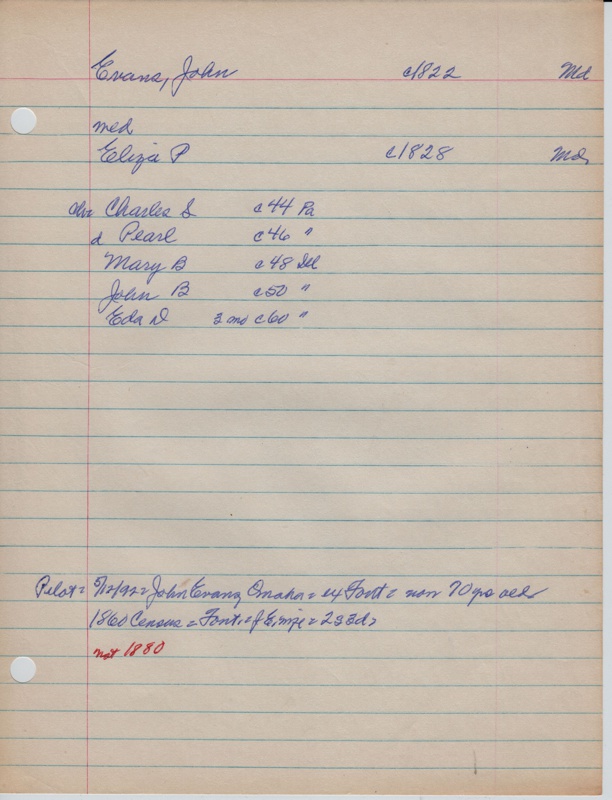 Evans, John c1822 Md
med
Eliza P c1828 Md,
ch= Charles S c44 Pa
d Pearl c46 "
Mary B c48 Ill
John B c50 "
Eda D 2 mo c60 "
Pilot= 5/12/92= John Evans, Omaha= ex Font= now 70 yrs old
1860 Census= Font.= = 2s 3d>
not 1880